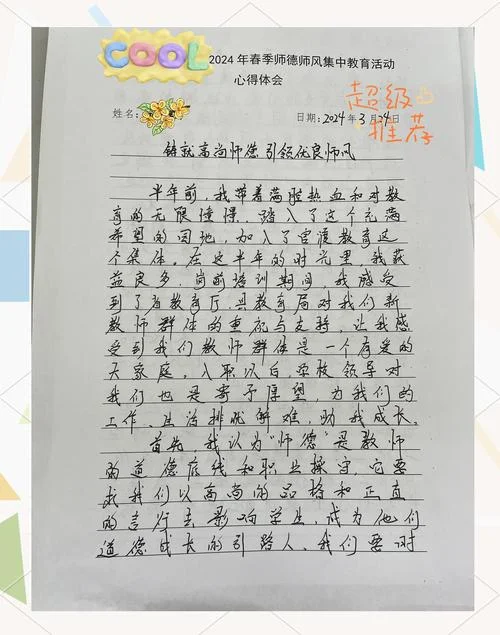 COOL
2024 年春季师德师风集中教育活动
心得体会
超级
推荐
姓名:
日期: 2024 年 3 月 24 日
铸就高尚师德 引领优良师风
半年前,我带着满腔热血和对教
育的无限憧憬,踏入了这个充满
希望的园地,加入了官渡教育这
个集体。在这半年的时光里,我获
益良多。岗前培训期间,我感受
到了省教育厅、县教育局对我们新
教师群体的重视与支持,让我感
受到我们教师群体是一个有爱的
大家庭,入职以后,学校领导对
我们也是寄予厚望,为我们的
工作、生活排忧解难,助我成长。
首先,我认为“师德”是教师
的道德底线和职业操守,它要
求我们以高尚的品格和正直
的言行去影响学生,成为他们
道德成长的引路人、我们要对